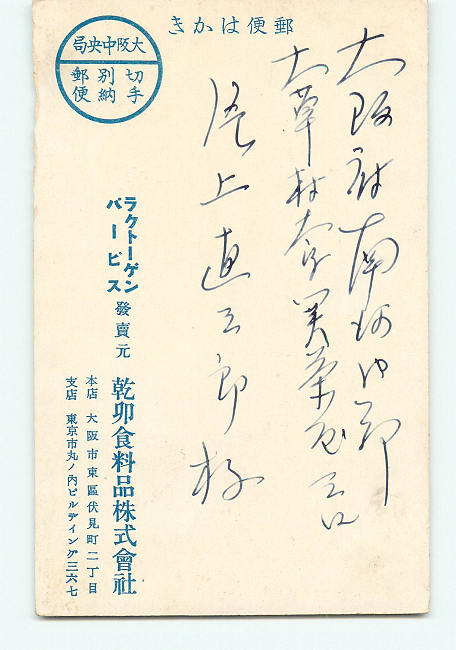 郵便はかき
大阪中央局
切手
別納
郵便
大阪府南河内郡
大草村大字
上直三郎様
ラクトーゲン
バービス
發賣元
乾卯食料品株式會社
本店 大阪市東區伏見町二丁目
支店 東京市丸ノ內ビルディング三六七